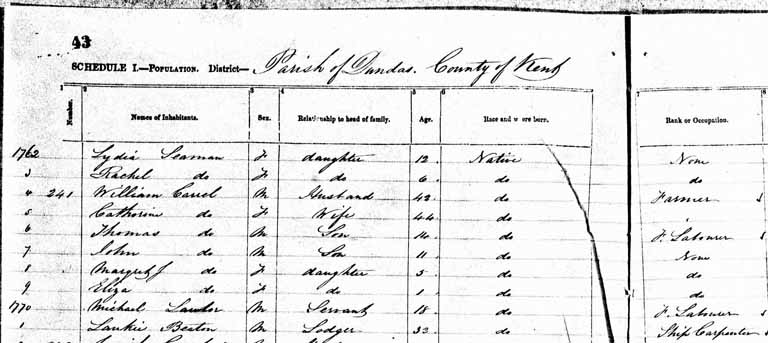 43
SCHEDULE I.—POPULATION. District— Parish of Dundas. County of Kent
1 2 3 4 5 6 7 8
Number. Names of Inhabitants. Sex. Relationship to head of family. Age. Race and where born. Rank or Occupation.
1762 Lydia Seaman F daughter 12 Native None
3 Rachel do F do 6 do do
4 241 William Carrel M Husband 42 do Farmer
5 Cathorine do F Wife 44 do
6 Thomas do M Son 14 do F. Labourer
7 John do M Son 11 do None
8 Margret J do F daughter 5 do do
9 Eliza do F do 1 do do
1770 Michael Lawlor M Servant 18 do F. Labourer
1 Beaton M Lodger 33 do Ship Carpenter